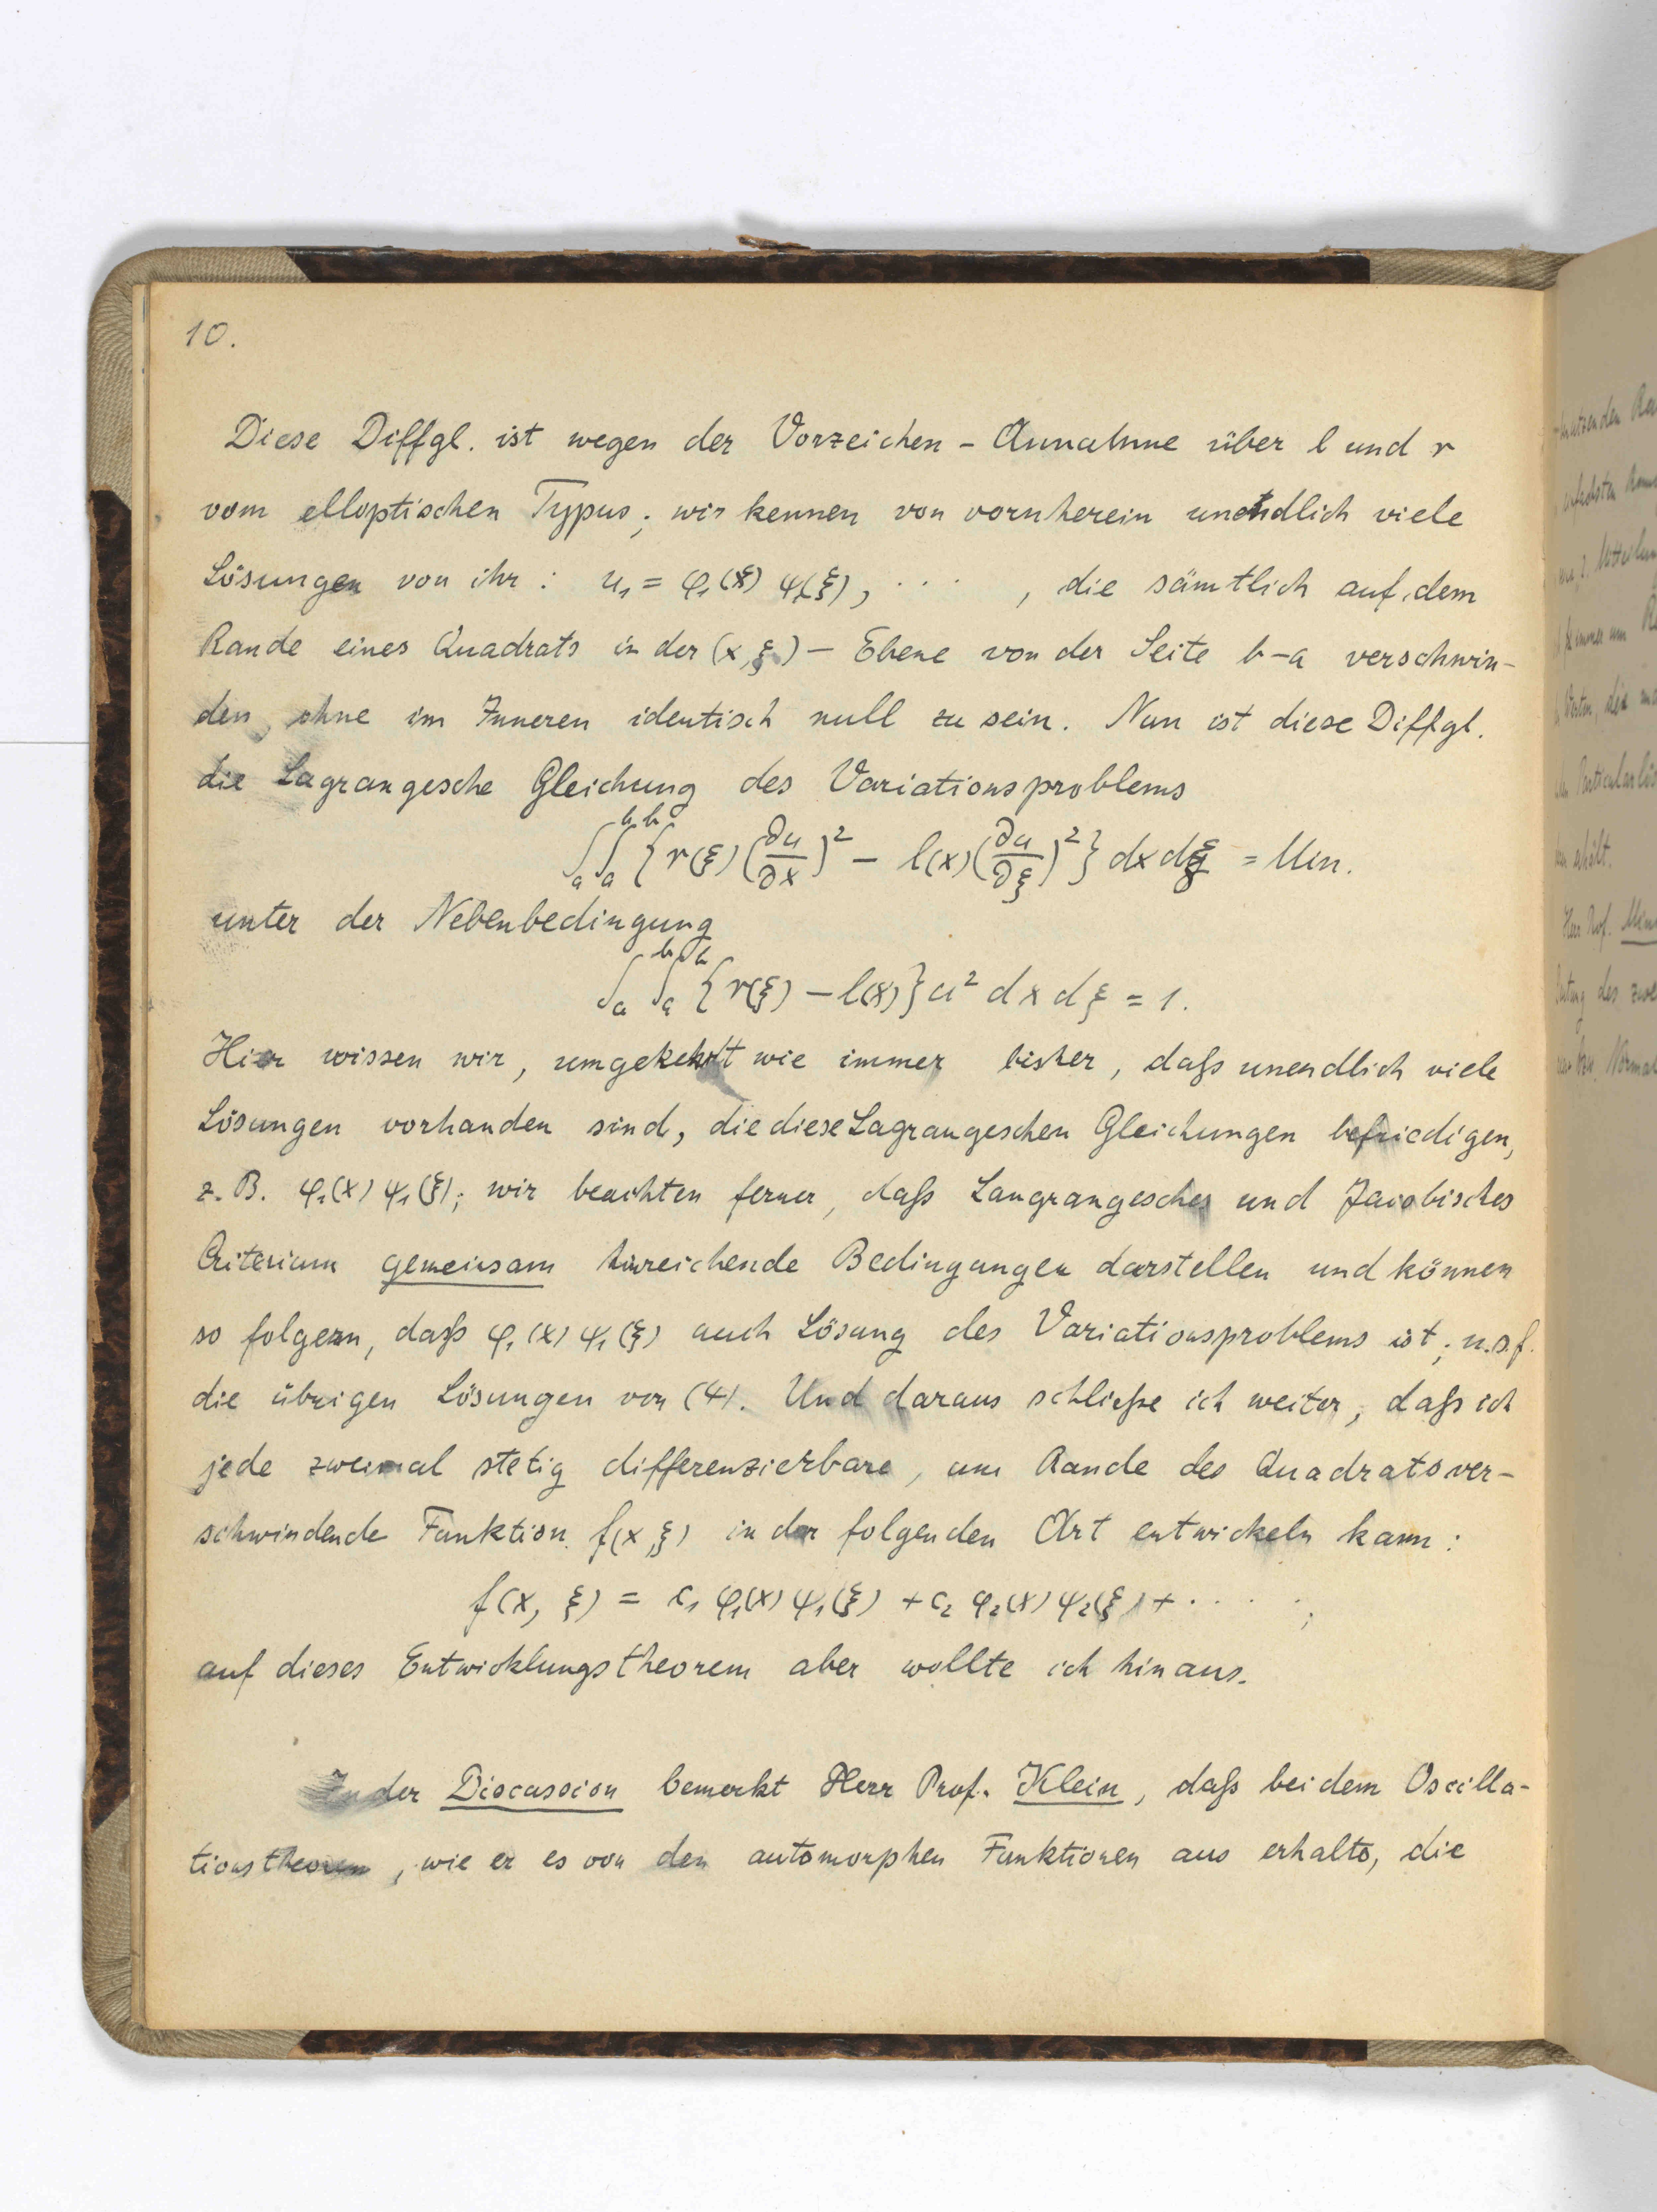 10.
Diese Diffgl. ist wegen der Vorzeichen-Annahme über l und r
vom elloptischen Typus; wir kennen von vornherein unendlich viele
Lösungen von ihr: u₁ = φ₁(x) ψ₁(ξ), . . . , die sämtlich auf dem
Rande eines Quadrats in der (x, ξ) – Ebene von der Seite b–a verschwin-
den, ohne im Inneren identisch null zu sein. Nun ist diese Diffgl.
die Lagrangesche Gleichung des Variationsproblems
∫ₐᵇ∫ₐᵇ {r(ξ)(∂u/∂x)² – l(x)(∂u/∂ξ)²} dx dξ = Min.
unter der Nebenbedingung
∫ₐᵇ∫ₐᵇ {r(ξ) – l(x)} u² dx dξ = 1.
Hier wissen wir, umgekehrt wie immer bisher, daſs unendlich viele
Lösungen vorhanden sind, die diese Lagrangeschen Gleichungen befriedigen,
z. B. φ₁(x) ψ₁(ξ); wir beachten ferner, daſs Langrangesches und Jacobisches
Criterium gemeinsam hinreichende Bedingungen darstellen und können
so folgern, daſs φ₁(x) ψ₁(ξ) auch Lösung des Variationsproblems ist; u.s.f.
die übrigen Lösungen von (4). Und daraus schlieſse ich weiter, daſs ich
jede zweimal stetig differenzierbare, am Rande des Quadrats ver-
schwindende Funktion f(x, ξ) in der folgenden Art entwickeln kann:
f(x, ξ) = c₁ φ₁(x) ψ₁(ξ) + c₂ φ₂(x) ψ₂(ξ) + . . . . ;
auf dieses Entwicklungstheorem aber wollte ich hinaus.
In der Discussion bemerkt Herr Prof. Klein, daſs bei dem Oscilla-
tionstheorem, wie er es von den automorphen Funktionen aus erhalte, die